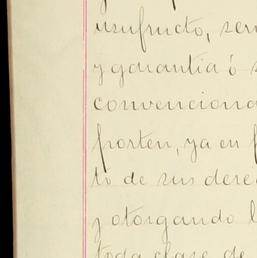 usufructo, ser
y garantia ó s
convenciona
porten, ya en f
to de sus dere
y otorgando l
toda clase de